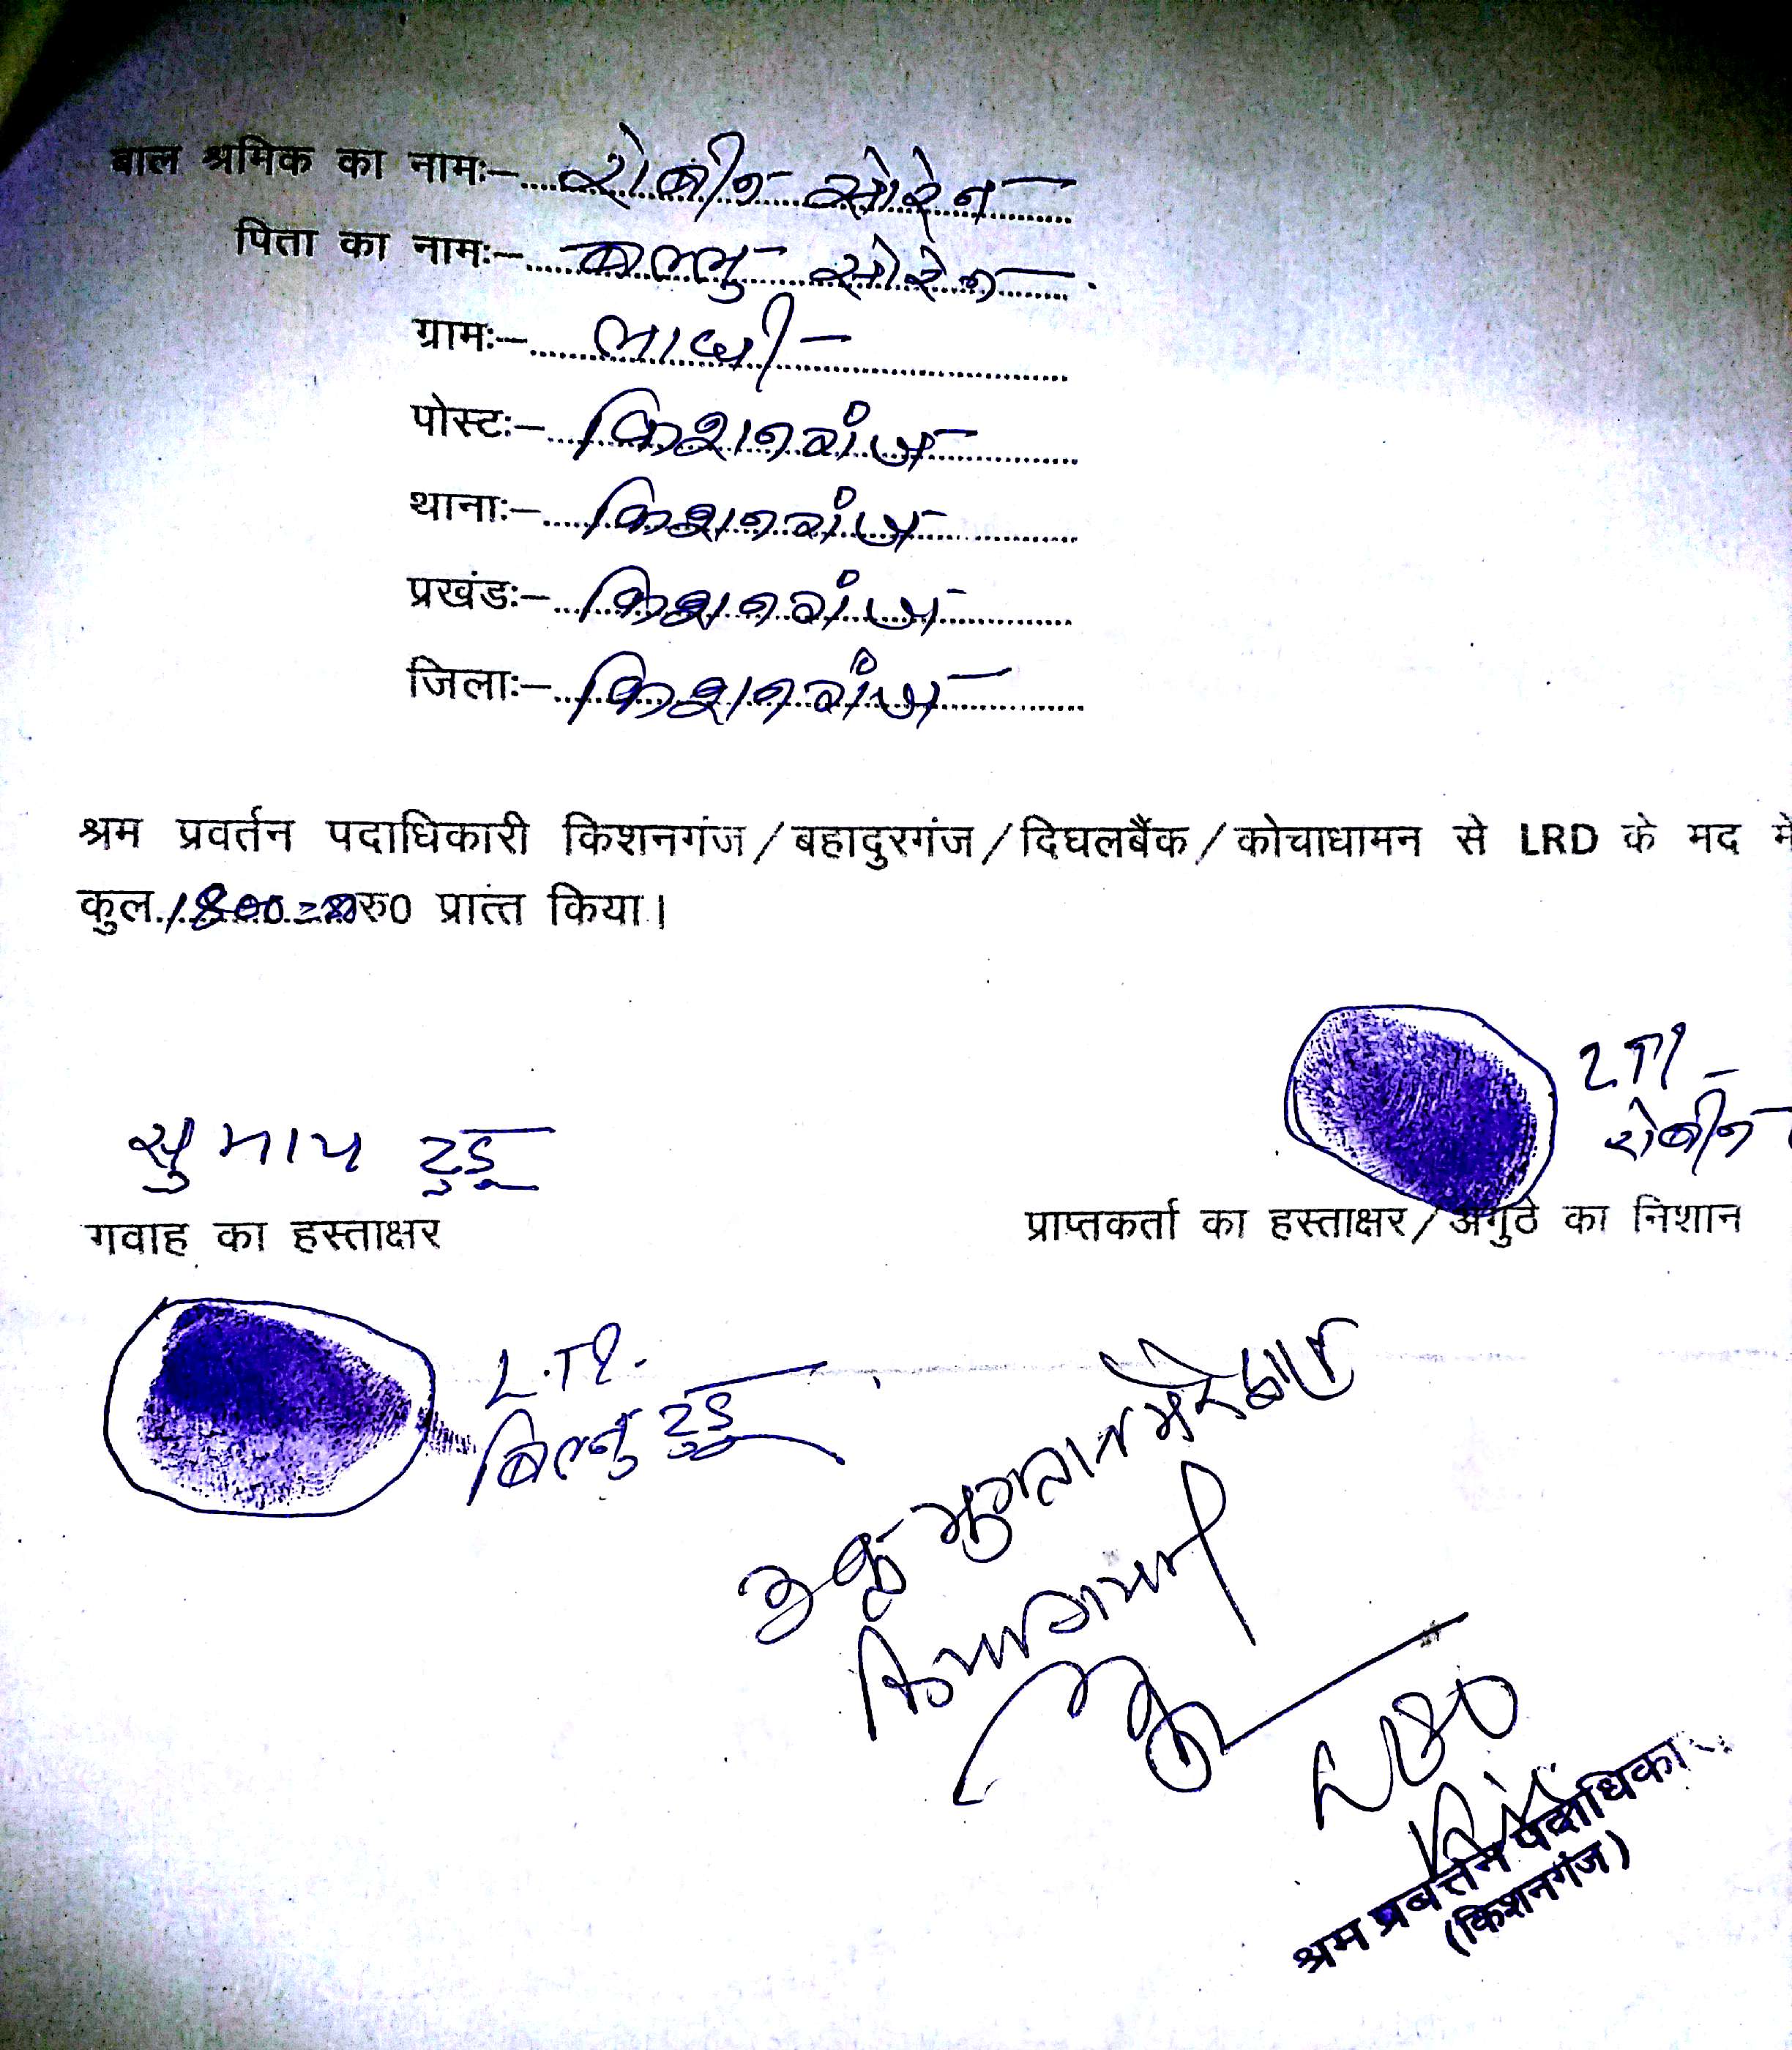 बाल श्रमिक का नामः–रोबीन सोरेन
पिता का नामः–कल्लु सोरेन
ग्रामः–
पोस्टः–किशनगंज
थानाः–किशनगंज
प्रखंडः–किशनगंज
जिलाः–किशनगंज
श्रम प्रवर्तन पदाधिकारी किशनगंज/बहादुरगंज/दिघलबैंक/कोचाधामन से LRD के मद में
कुल 1800=00 रु0 प्रात्त किया।
LTI
रोबीन
सुमाय टुडू
गवाह का हस्ताक्षर
प्राप्तकर्ता का हस्ताक्षर/अंगुठे का निशान
L.TI.
बिल्नु टुडू
भुगतान मेरे द्वारा
किया गया
श्रम प्रवर्त्तन पदाधिका
(किशनगंज)